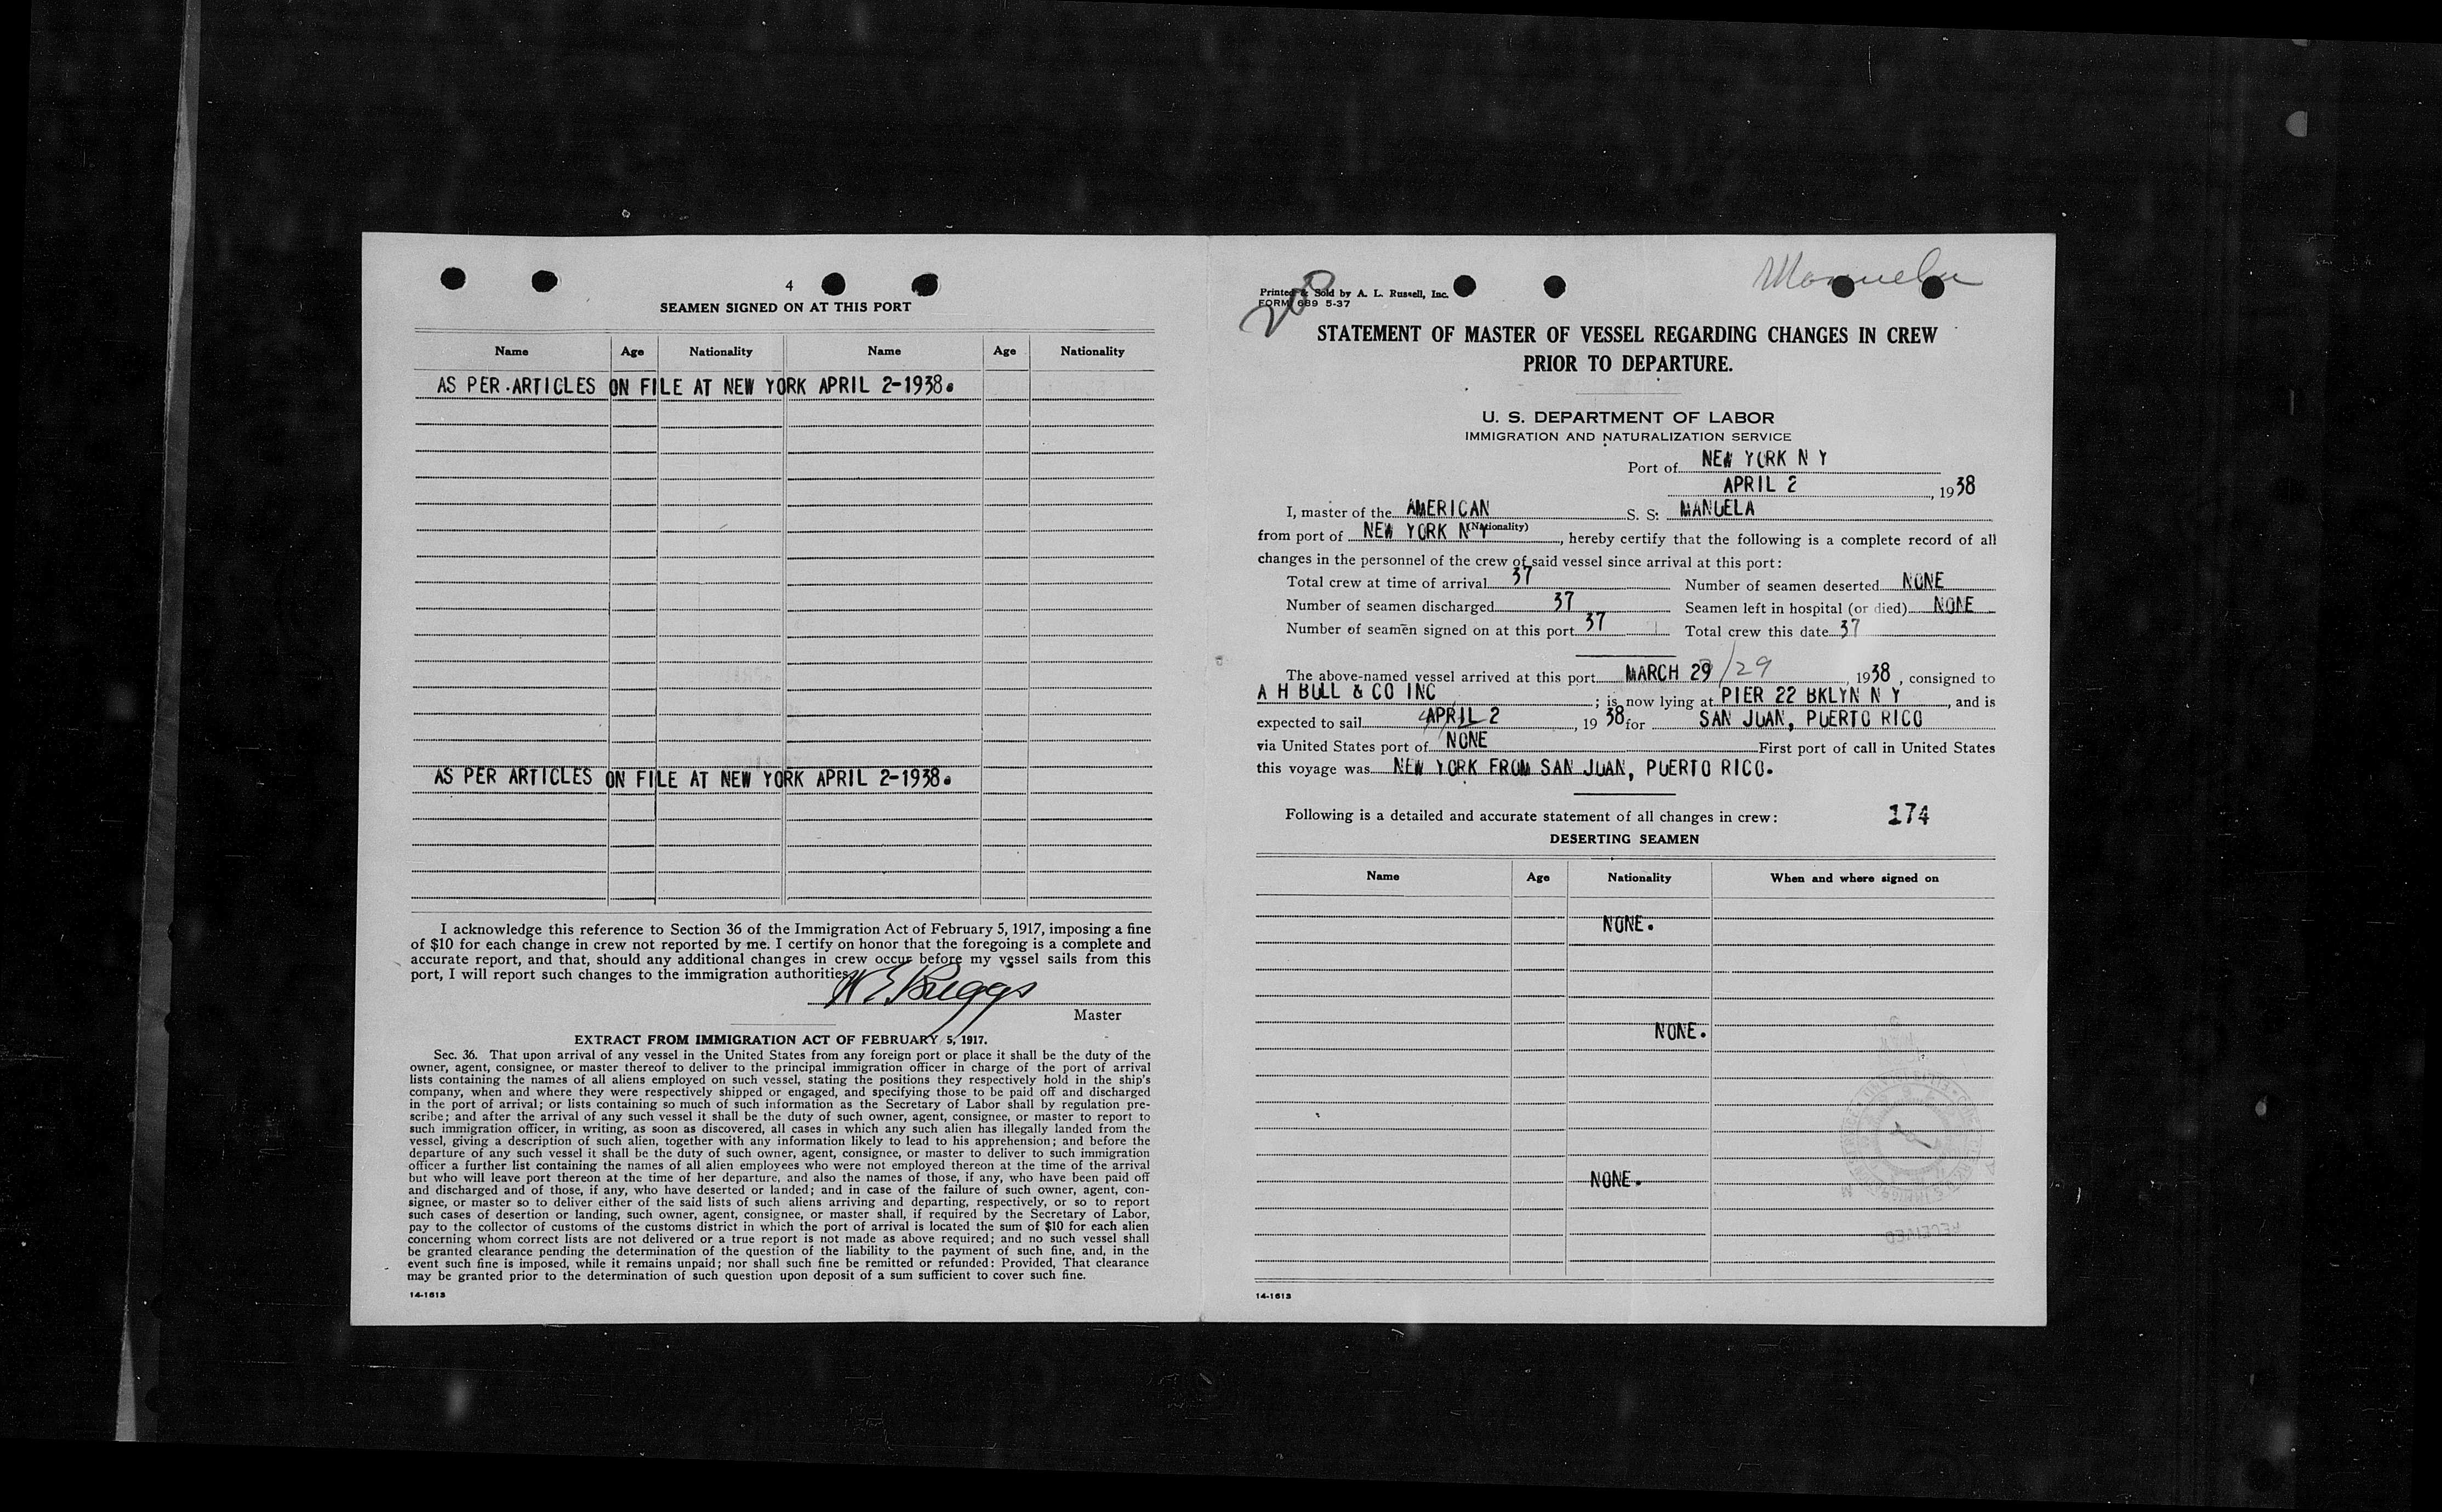 4
SEAMEN SIGNED ON AT THIS PORT
Name Age Nationality Name Age Nationality
AS PER ARTICLES ON FILE AT NEW YORK APRIL 2-1938.
AS PER ARTICLES ON FILE AT NEW YORK APRIL 2-1938.
I acknowledge this reference to Section 36 of the Immigration Act of February 5, 1917, imposing a fine
of $10 for each change in crew not reported by me. I certify on honor that the foregoing is a complete and
accurate report, and that, should any additional changes in crew occur before my vessel sails from this
port, I will report such changes to the immigration authorities.
W E Briggs
Master
EXTRACT FROM IMMIGRATION ACT OF FEBRUARY 5, 1917.
Sec. 36. That upon arrival of any vessel in the United States from any foreign port or place it shall be the duty of the
owner, agent, consignee, or master thereof to deliver to the principal immigration officer in charge of the port of arrival
lists containing the names of all aliens employed on such vessel, stating the positions they respectively hold in the ship's
company, when and where they were respectively shipped or engaged, and specifying those to be paid off and discharged
in the port of arrival; or lists containing so much of such information as the Secretary of Labor shall by regulation pre-
scribe; and after the arrival of any such vessel it shall be the duty of such owner, agent, consignee, or master to report to
such immigration officer, in writing, as soon as discovered, all cases in which any such alien has illegally landed from the
vessel, giving a description of such alien, together with any information likely to lead to his apprehension; and before the
departure of any such vessel it shall be the duty of such owner, agent, consignee, or master to deliver to such immigration
officer a further list containing the names of all alien employees who were not employed thereon at the time of the arrival
but who will leave port thereon at the time of her departure, and also the names of those, if any, who have been paid off
and discharged and of those, if any, who have deserted or landed; and in case of the failure of such owner, agent, con-
signee, or master so to deliver either of the said lists of such aliens arriving and departing, respectively, or so to report
such cases of desertion or landing, such owner, agent, consignee, or master shall, if required by the Secretary of Labor,
pay to the collector of customs of the customs district in which the port of arrival is located the sum of $10 for each alien
concerning whom correct lists are not delivered or a true report is not made as above required; and no such vessel shall
be granted clearance pending the determination of the question of the liability to the payment of such fine, and, in the
event such fine is imposed, while it remains unpaid; nor shall such fine be remitted or refunded: Provided, That clearance
may be granted prior to the determination of such question upon deposit of a sum sufficient to cover such fine.
14-1613
Manuela
Printed & Sold by A. L. Russell, Inc.
FORM 689 5-37
STATEMENT OF MASTER OF VESSEL REGARDING CHANGES IN CREW
PRIOR TO DEPARTURE.
U. S. DEPARTMENT OF LABOR
IMMIGRATION AND NATURALIZATION SERVICE
Port of NEW YORK N Y
APRIL 2, 1938
I, master of the AMERICAN S. S. MANUELA
(Nationality)
from port of NEW YORK N Y, hereby certify that the following is a complete record of all
changes in the personnel of the crew of said vessel since arrival at this port:
Total crew at time of arrival 37 Number of seamen deserted NONE
Number of seamen discharged 37 Seamen left in hospital (or died) NONE
Number of seamen signed on at this port 37 Total crew this date 37
The above-named vessel arrived at this port MARCH 29 /29, 1938, consigned to
A H BULL & CO INC; is now lying at PIER 22 BKLYN N Y, and is
expected to sail APRIL 2, 1938 for SAN JUAN, PUERTO RICO
via United States port of NONE First port of call in United States
this voyage was NEW YORK FROM SAN JUAN, PUERTO RICO.
Following is a detailed and accurate statement of all changes in crew: 174
DESERTING SEAMEN
Name Age Nationality When and where signed on
NONE.
NONE.
NONE.
RECEIVED
14-1613